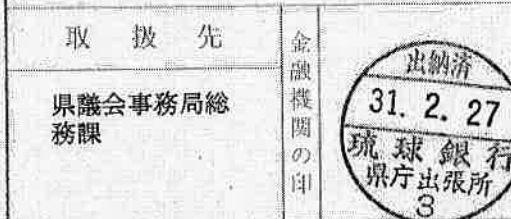 取扱先
県議会事務局総
務課
金融機関の印
出納済
31. 2. 27
琉球銀行
県庁出張所
3